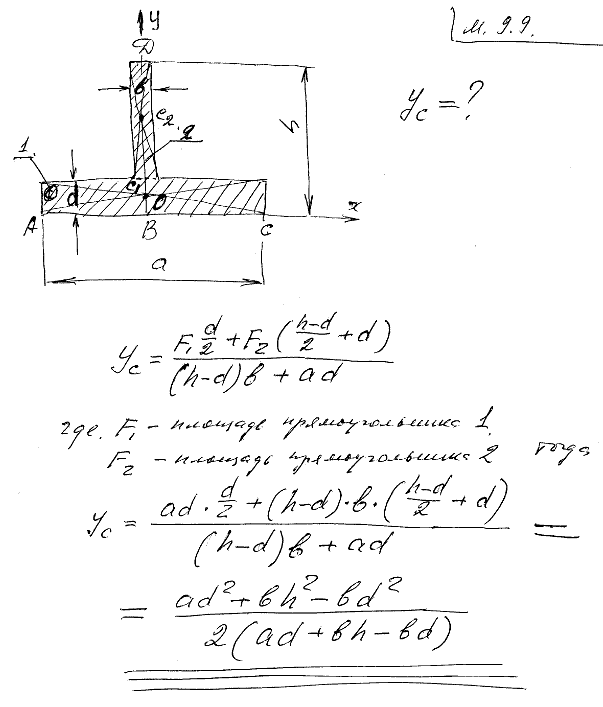 м. 9.9.
y
D
y_c = ?
в
c₂
2
h
1.
c₁
d
O
A
B
C
x
a
y_c = (F₁ d/2 + F₂ ((h-d)/2 + d)) / ((h-d)в + ad)
где. F₁ – площадь прямоугольника 1.
F₂ – площадь прямоугольника 2 тогда
y_c = (ad · d/2 + (h-d)·в·((h-d)/2 + d)) / ((h-d)в + ad) =
= (ad² + вh² - вd²) / (2(ad + вh - вd))